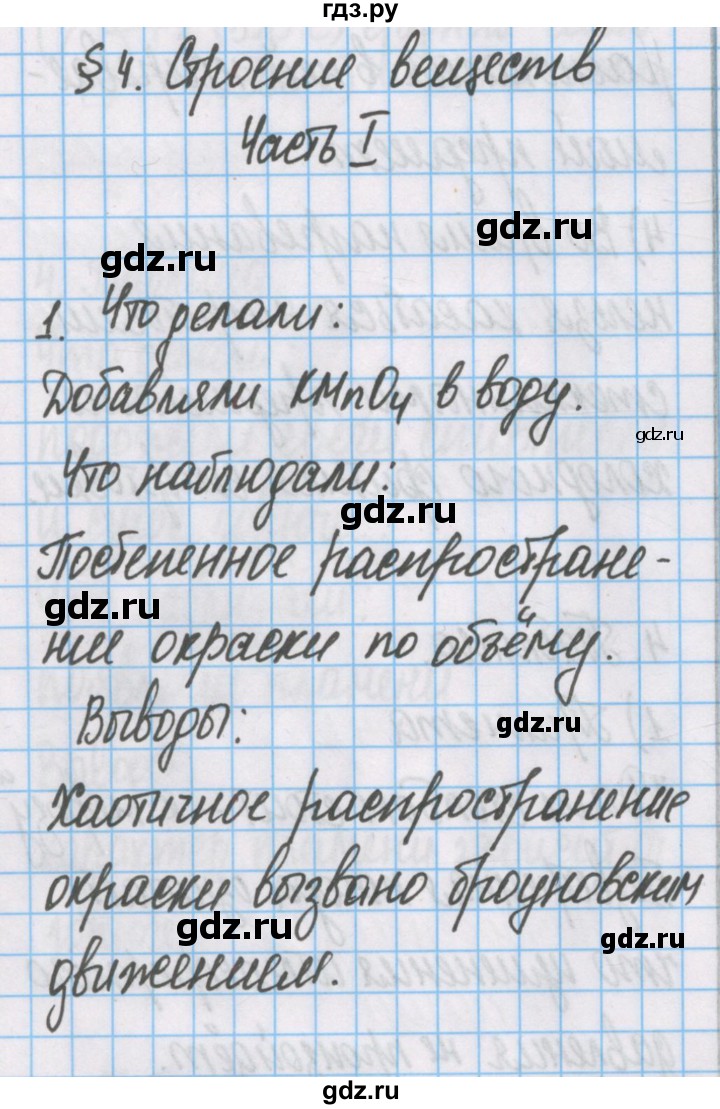 гдз.ру
§ 4. Строение веществ
Часть I
gdz.ru
gdz.ru
1. Что делали:
Добавляли KMnO4 в воду.
gdz.ru
Что наблюдали:
gdz.ru
Постепенное распростране-
gdz.ru
ние окраски по объёму.
gdz.ru
Выводы:
Хаотичное распространение
окраски вызвано броуновским
gdz.ru
gdz.ru
движением.
gdz.ru